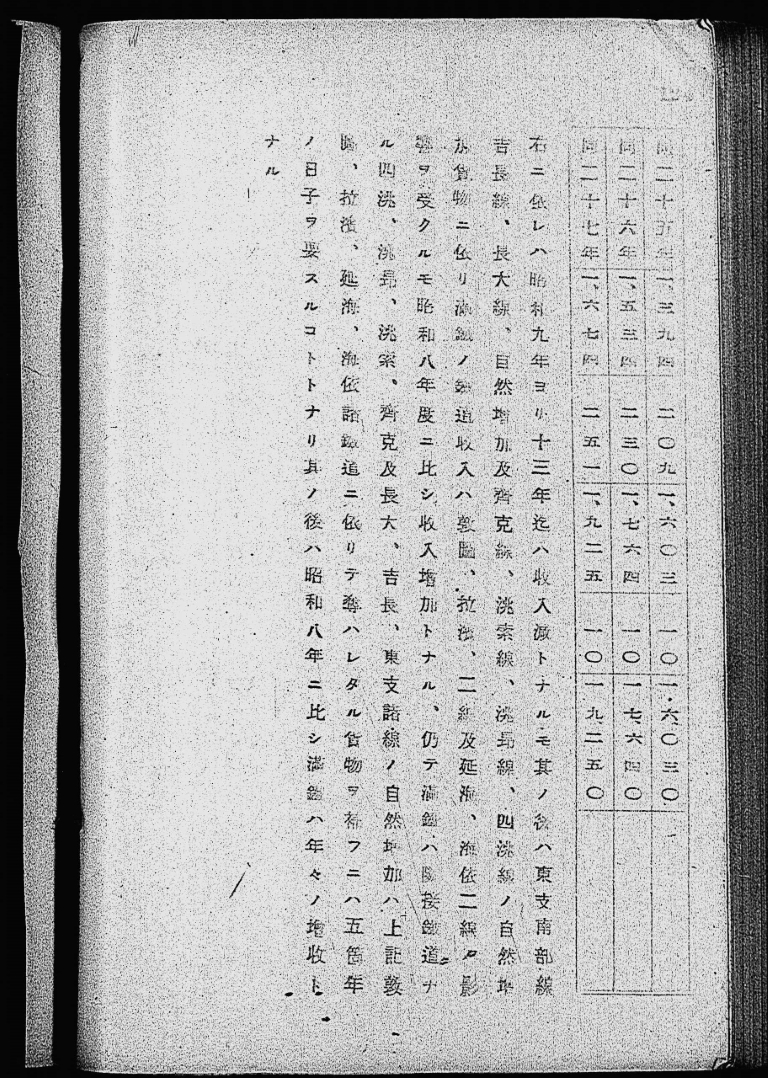 同二十五年 一、三九四 二〇九 一、六〇三 一〇 一六、〇三〇
同二十六年 一、五三四 二三〇 一、七六四 一〇 一七、六四〇
同二十七年 一、六七四 二五一 一、九二五 一〇 一九、二五〇
右ニ依レハ昭和九年ヨリ十三年迄ハ收入減トナルモ其ノ後ハ東支南部線
吉長線、長大線、自然增加及齊克線、洮索線、洮昂線、四洮線ノ自然增
加貨物ニ依リ滿鐵ノ鐵道收入ハ敦圖、拉濱、二線及延海、海依二線ノ影
響ヲ受クルモ昭和八年度ニ比シ收入增加トナル、仍テ滿鐵ハ隣接鐵道ナ
ル四洮、洮昂、洮索、齊克及長大、吉長、東支諸線ノ自然增加ハ上記敦
圖、拉濱、延海、海依諸鐵道ニ依リテ奪ハレタル貨物ヲ補フニハ五箇年
ノ日子ヲ要スルコトトナリ其ノ後ハ昭和八年ニ比シ滿鐵ハ年々ノ增收ト
ナル